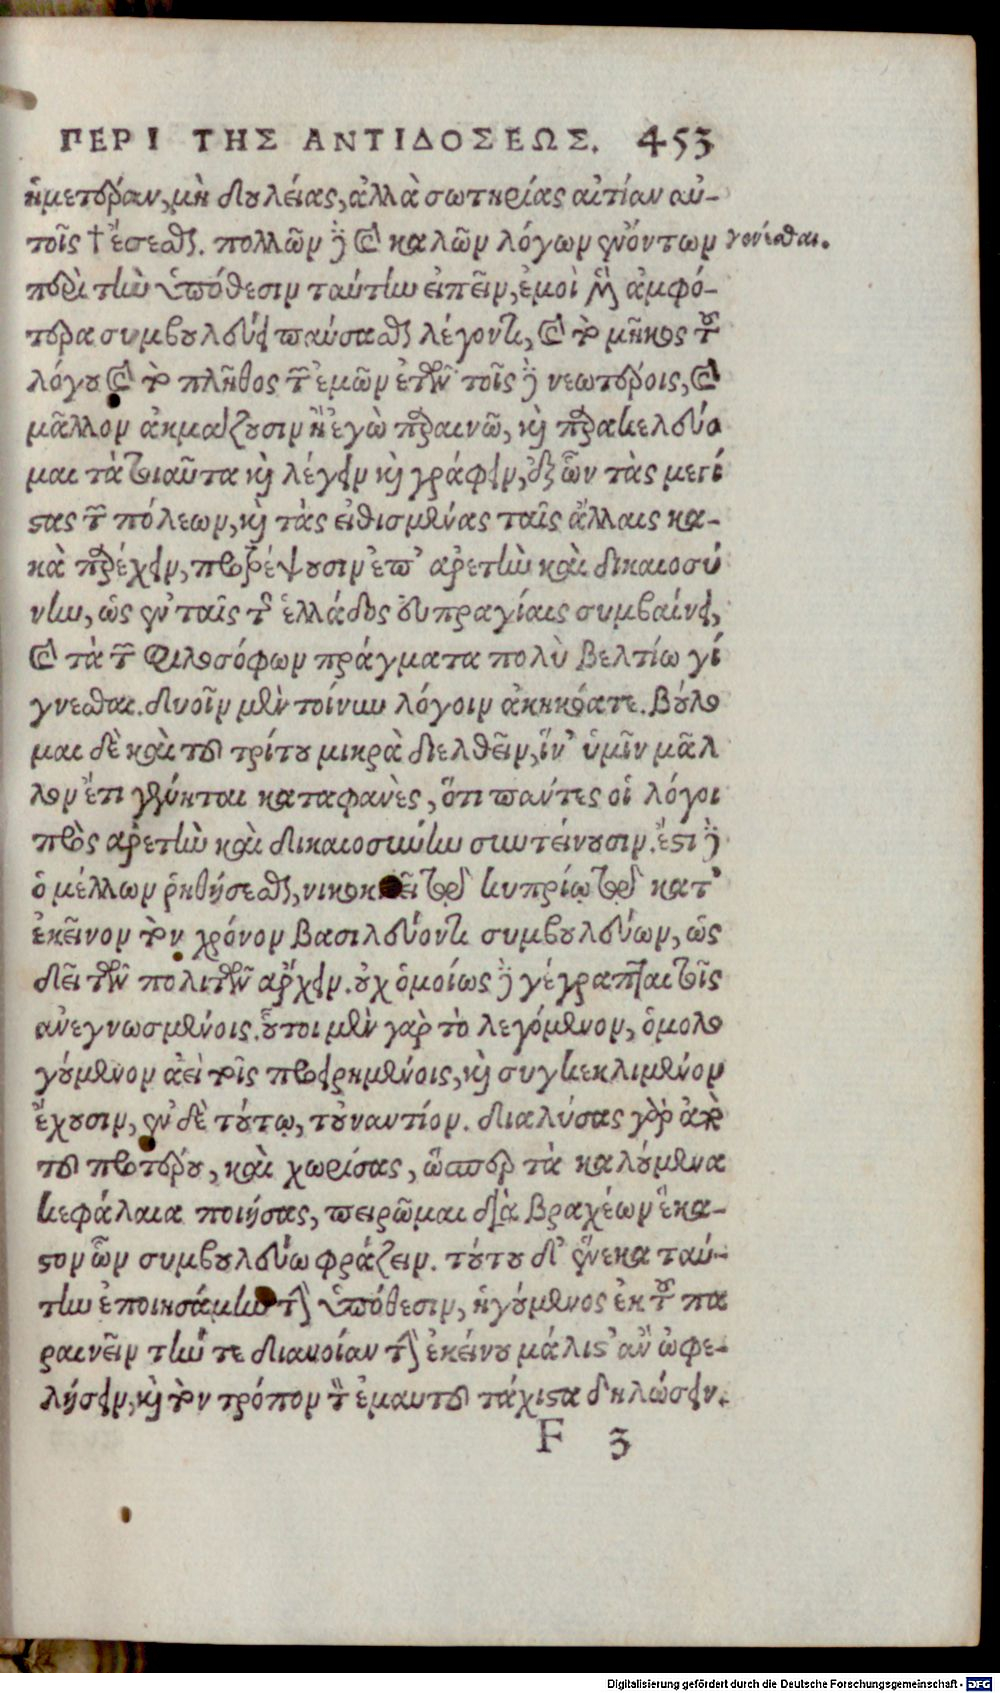 ΠΕΡΙ ΤΗΣ ΑΝΤΙΔΟΣΕΩΣ. 453
ἡμετέραν, μὴ δουλείας, ἀλλὰ σωτηρίας αἰτίαν αὐ-
τοῖς † ἔσεσθαι. πολλῶν δὲ καὶ καλῶν λόγων ἐνόντων γενέσθαι.
περὶ τὴν ὑπόθεσιν ταύτην εἰπεῖν, ἐμοὶ μὲν ἀμφό-
τερα συμβουλεύει παύσασθαι λέγοντι, καὶ τὸ μῆκος τοῦ
λόγου καὶ τὸ πλῆθος τῶν ἐμῶν ἐτῶν· τοῖς δὲ νεωτέροις, καὶ
μᾶλλον ἀκμάζουσιν ἢ ἐγὼ παραινῶ, καὶ παρακελεύο
μαι τὰ τοιαῦτα καὶ λέγειν καὶ γράφειν, ἐξ ὧν τὰς μεγί
στας τῶν πόλεων, καὶ τὰς εἰθισμένας ταῖς ἄλλαις κα-
κὰ παρέχειν, προτρέψουσιν ἐπ' ἀρετὴν καὶ δικαιοσύ
νην, ὡς ἐν ταῖς τῆς ἑλλάδος εὐπραγίαις συμβαίνει,
καὶ τὰ τῶν φιλοσόφων πράγματα πολὺ βελτίω γί
γνεσθαι. δυοῖν μὲν τοίνυν λόγοιν ἀκηκόατε. βούλο
μαι δὲ καὶ τοῦ τρίτου μικρὰ διελθεῖν, ἵν' ὑμῖν μᾶλ
λον ἔτι γένηται καταφανὲς, ὅτι πάντες οἱ λόγοι
πρὸς ἀρετὴν καὶ δικαιοσύνην συντείνουσιν. ἔστι δὲ
ὁ μέλλων ῥηθήσεσθαι, νικοκλεῖ τῷ κυπρίῳ τῷ κατ'
ἐκεῖνον τὸν χρόνον βασιλεύοντι συμβουλεύων, ὡς
δεῖ τῶν πολιτῶν ἄρχειν. οὐχ ὁμοίως δὲ γέγραπται τοῖς
ἀνεγνωσμένοις. οὗτοι μὲν γὰρ τὸ λεγόμενον, ὁμολο
γούμενον ἀεὶ τοῖς προειρημένοις, καὶ συγκεκλιμένον
ἔχουσιν, ἐν δὲ τούτῳ, τοὐναντίον. διαλύσας γὰρ ἀπὸ
τοῦ προτέρου, καὶ χωρίσας, ὥσπερ τὰ καλούμενα
κεφάλαια ποιήσας, πειρῶμαι διὰ βραχέων ἕκα-
στον ὧν συμβουλεύω φράζειν. τούτου δ' ἕνεκα ταύ-
την ἐποιησάμην τὴν ὑπόθεσιν, ἡγούμενος ἐκ τοῦ πα
ραινεῖν τήν τε διάνοιαν τὴν ἐκείνου μάλιστ' ἂν ὠφε-
λήσειν, καὶ τὸν τρόπον τὸν ἐμαυτοῦ τάχιστα δηλώσειν.
F 3
Digitalisierung gefördert durch die Deutsche Forschungsgemeinschaft - DFG